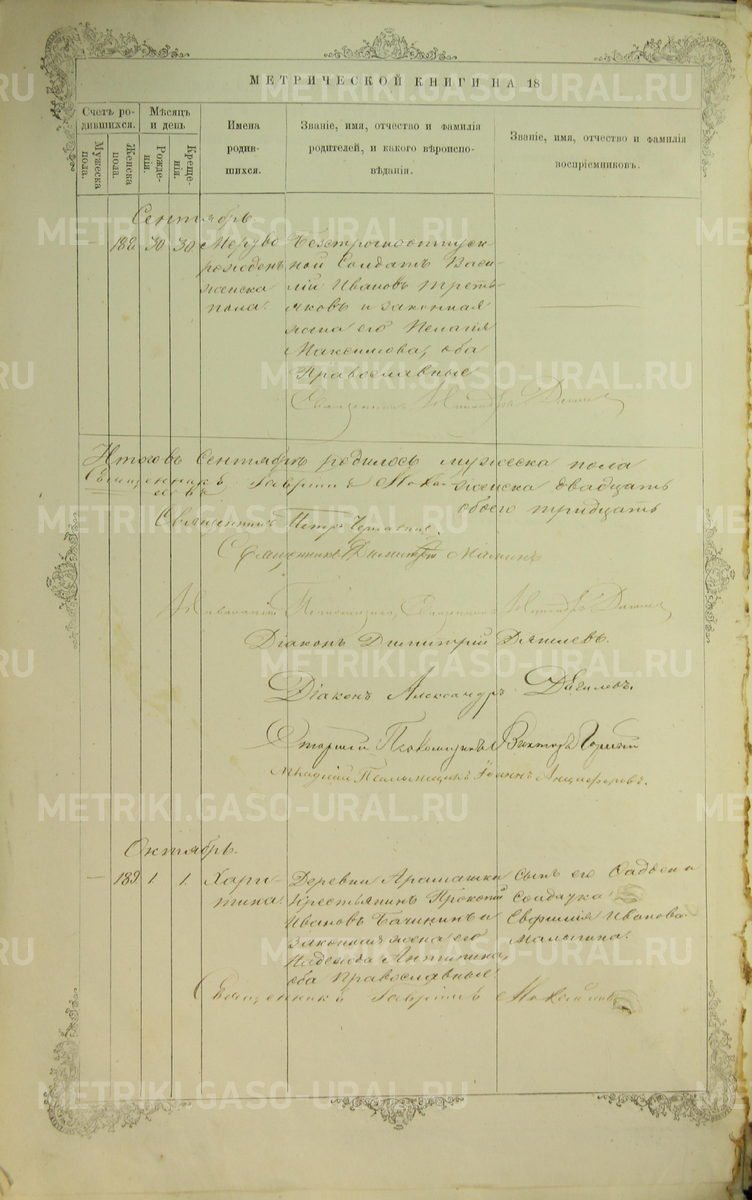 МЕТРИЧЕСКОЙ КНИГИ НА 18
Счетъ ро-
дившихся.
Мужеска
пола.
Женска
пола.
Мѣсяцъ
и день
Рожде-
нія.
Креще-
нія.
Имена
родив-
шихся.
Званіе, имя, отчество и фамилія
родителей, и какого вѣроиспо-
вѣданія.
Званіе, имя, отчество и фамилія
воспріемниковъ.
Сентябрь
188. 30 30.
Мертво
рожден
женска
пола.
ной Солдатъ Васи-
лій Ивановъ Треть-
яковъ и законная
жена его Пелагія
Максимова, оба
Православные
Итого въ Сентябрѣ родилось мужеска пола
женска двадцать
обоего тридцать
Священникъ Гавріилъ
Священникъ Петръ
Священникъ Димитрій
Священникъ
Діаконъ Димитрій
Діаконъ Александръ
Старшій Псаломщикъ Викторъ
Младшій Псаломщикъ Іоаннъ Анциферовъ.
Октябрь.
189. 1 1.
Хари-
тина
Деревни Арамашки
Крестьянинъ Прокопій
Ивановъ Бачининъ и
законная жена его
Надежда Антипина,
оба Православные
сынъ его Фаддей и
солдачка
Евфимія Иванова
Малыгина.
Священникъ Гавріилъ
METRIKI.GASO-URAL.RU